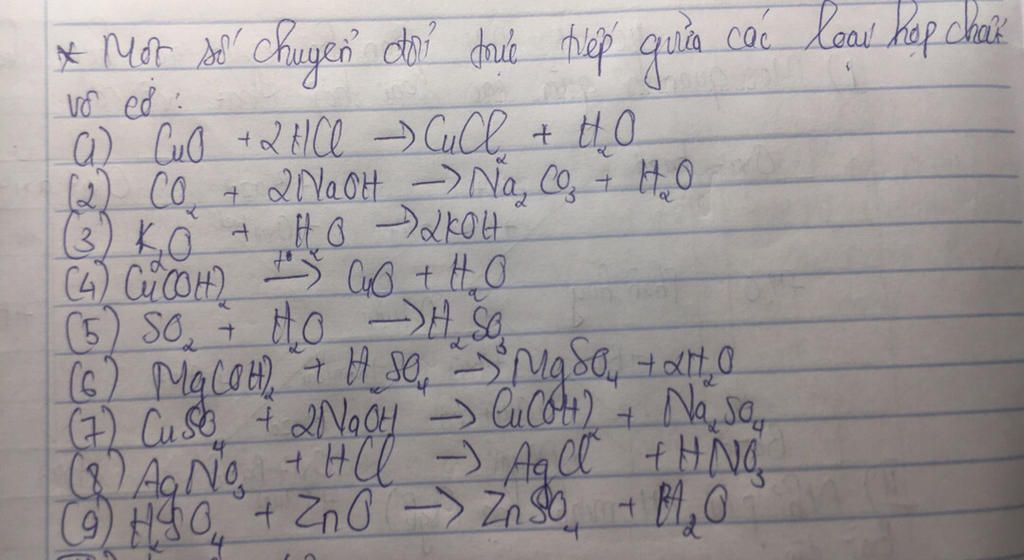 * Một số chuyển đổi trực tiếp giữa các loại hợp chất
vô cơ :
(1) CuO + 2HCl → CuCl₂ + H₂O
(2) CO₂ + 2NaOH → Na₂CO₃ + H₂O
(3) K₂O + H₂O → 2KOH
(4) Cu(OH)₂ t° → CuO + H₂O
(5) SO₂ + H₂O → H₂SO₃
(6) Mg(OH)₂ + H₂SO₄ → MgSO₄ + 2H₂O
(7) CuSO₄ + 2NaOH → Cu(OH)₂ + Na₂SO₄
(8) AgNO₃ + HCl → AgCl + HNO₃
(9) H₂SO₄ + ZnO → ZnSO₄ + H₂O